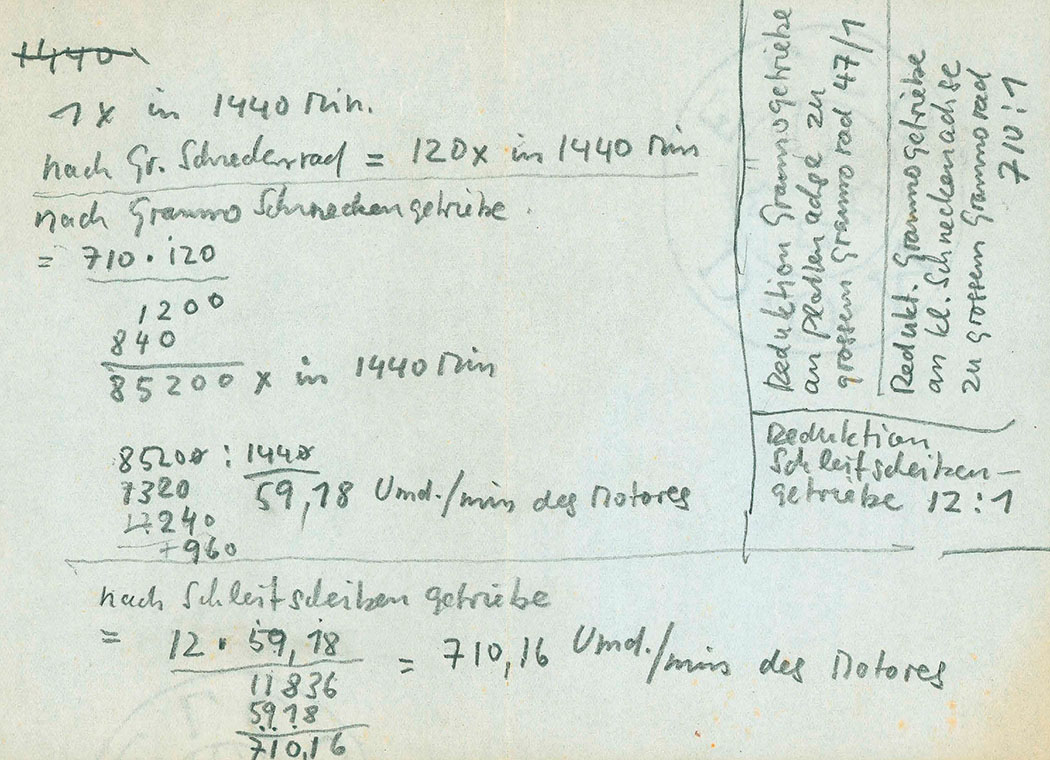 1440
1x in 1440 Min.
nach Gr. Schneckenrad = 120x in 1440 Min
nach Grammo Schneckengetriebe.
= 710 · 120
1200
840
85200 x in 1440 Min
85200 : 1440
7320 59,18 Umd./min des Motores
12240
7960
nach Schleifscheiben getriebe
= 12 · 59,18 = 710,16 Umd./min des Motores
11836
5918
710,16
Reduktion Grammogetriebe
an Plattenachse zu
grossem Grammorad 47/1
Redukt. Grammogetriebe
an kl. Schneckenachse
zu grossem Grammorad
710:1
Reduktion
Schleifscheiben-
getriebe 12:1